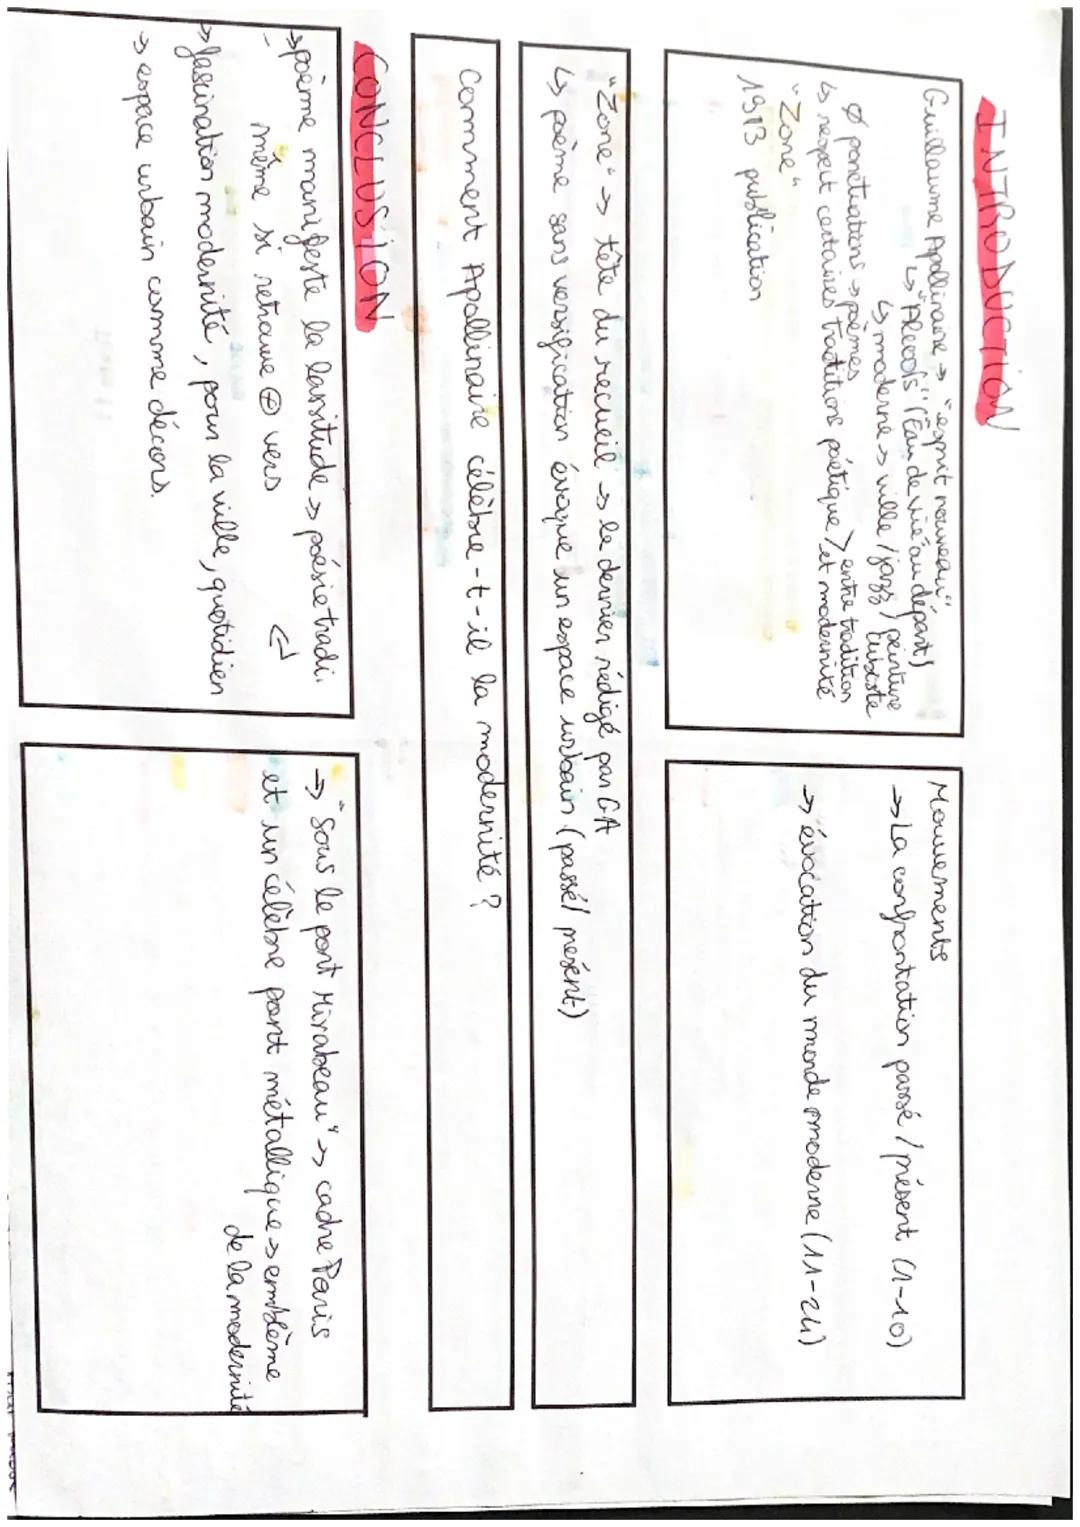 INTRODUCTION
Guillaume Apollinaire → "esprit nouveau"
↳ "Alcools" ("Eau de vie" au départ)
↳ moderne → ville / jazz / peinture cubiste
Ø ponctuations → poèmes
↳ respect certaines traditions poétique > entre tradition et modernité
"Zone"
1913 publication
Mouvements
→ La confrontation passé / présent (1-10)
→ évocation du monde moderne (11-24)
"Zone" → tête du recueil → le dernier rédigé par GA
↳ poème sans versification évoque un espace urbain (passé / présent)
Comment Apollinaire célèbre-t-il la modernité ?
CONCLUSION
→ poème manifeste la lassitude → poésie tradi.
même si retrouve ⊕ vers
→ fascination modernité, pour la ville, quotidien
→ espace urbain comme décors.
→ "Sous le pont Mirabeau" → cadre Paris
et un célèbre pont métallique → emblème
de la modernité